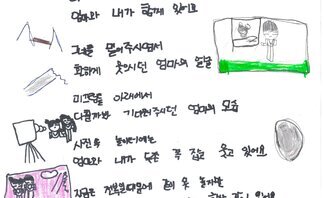 엄마와 내가 함께 있어요
그네를 밀어주시면서
환하게 웃으시던 엄마의 얼굴
미끄럼틀 아래에서
다칠까봐 기다려주시던 엄마의 모습
사진 속 놀이터에는
엄마와 내가 두손 꼭 잡고 웃고 있어요
지금은 같이 못 놀지만